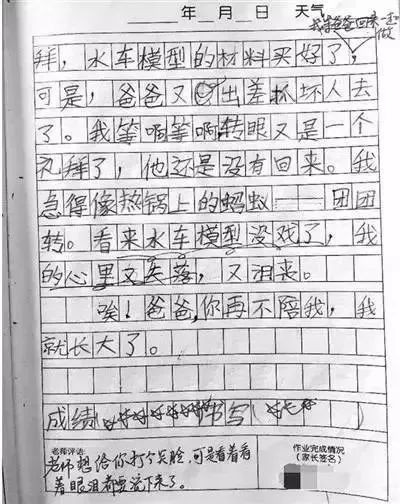 年 月 日 天气
我等爸爸回来一起做
拜，水车模型的材料买好了，
可是，爸爸又出差抓坏人去
了。我等啊等啊转眼又是一个
礼拜了，他还是没有回来。我
急得像热锅上的蚂蚁——团团
转。看来水车模型没戏了，我
的心里又失落，又沮丧。
唉！爸爸，你再不陪我，我
就长大了。
成绩 书写
老师评语：
老师想给你打个笑脸，可是看着看
着眼泪都要流下来了。
作业完成情况
（家长签名）